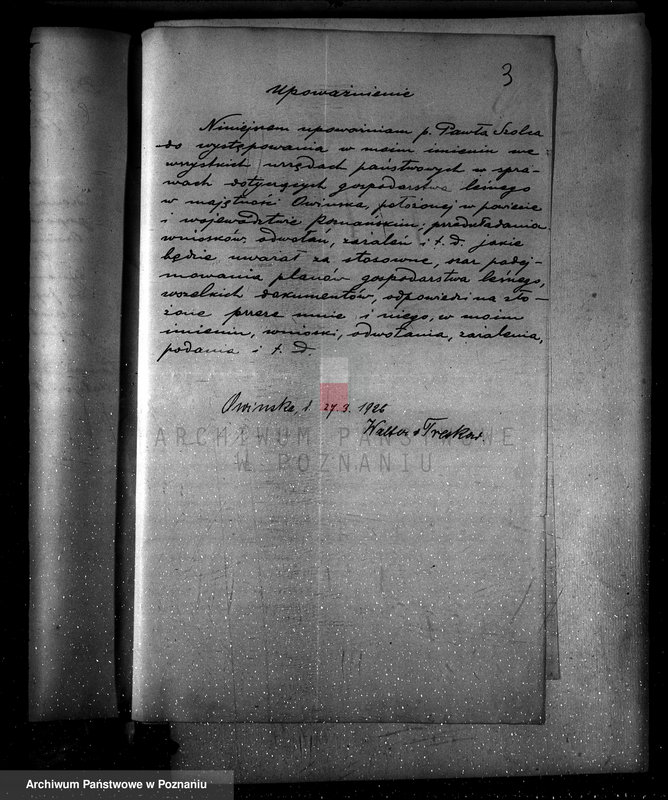 3
Upoważnienie
Niniejszem upoważniam p. Pawła Szolca
do występowania w moim imieniu we
wszystkich urzędach państwowych w spra-
wach dotyczących gospodarstwa leśnego
w majętności Owinska, położonej w powiecie
i województwie Poznańskim, przedkładania
wniosków, odwołań, zażaleń i t. d. jakie
będzie uważał za stosowne, oraz podej-
mowania planów gospodarstwa leśnego,
wszelkich dokumentów, odpowiedzi na zło-
żone przeze mnie i niego, w moim
imieniu, wnioski, odwołania, zażalenia,
podania i t. d.
Owinska, d. 27.3. 1926
Walter v Treskow
ARCHIWUM PAŃSTWOWE
W POZNANIU
Archiwum Państwowe w Poznaniu